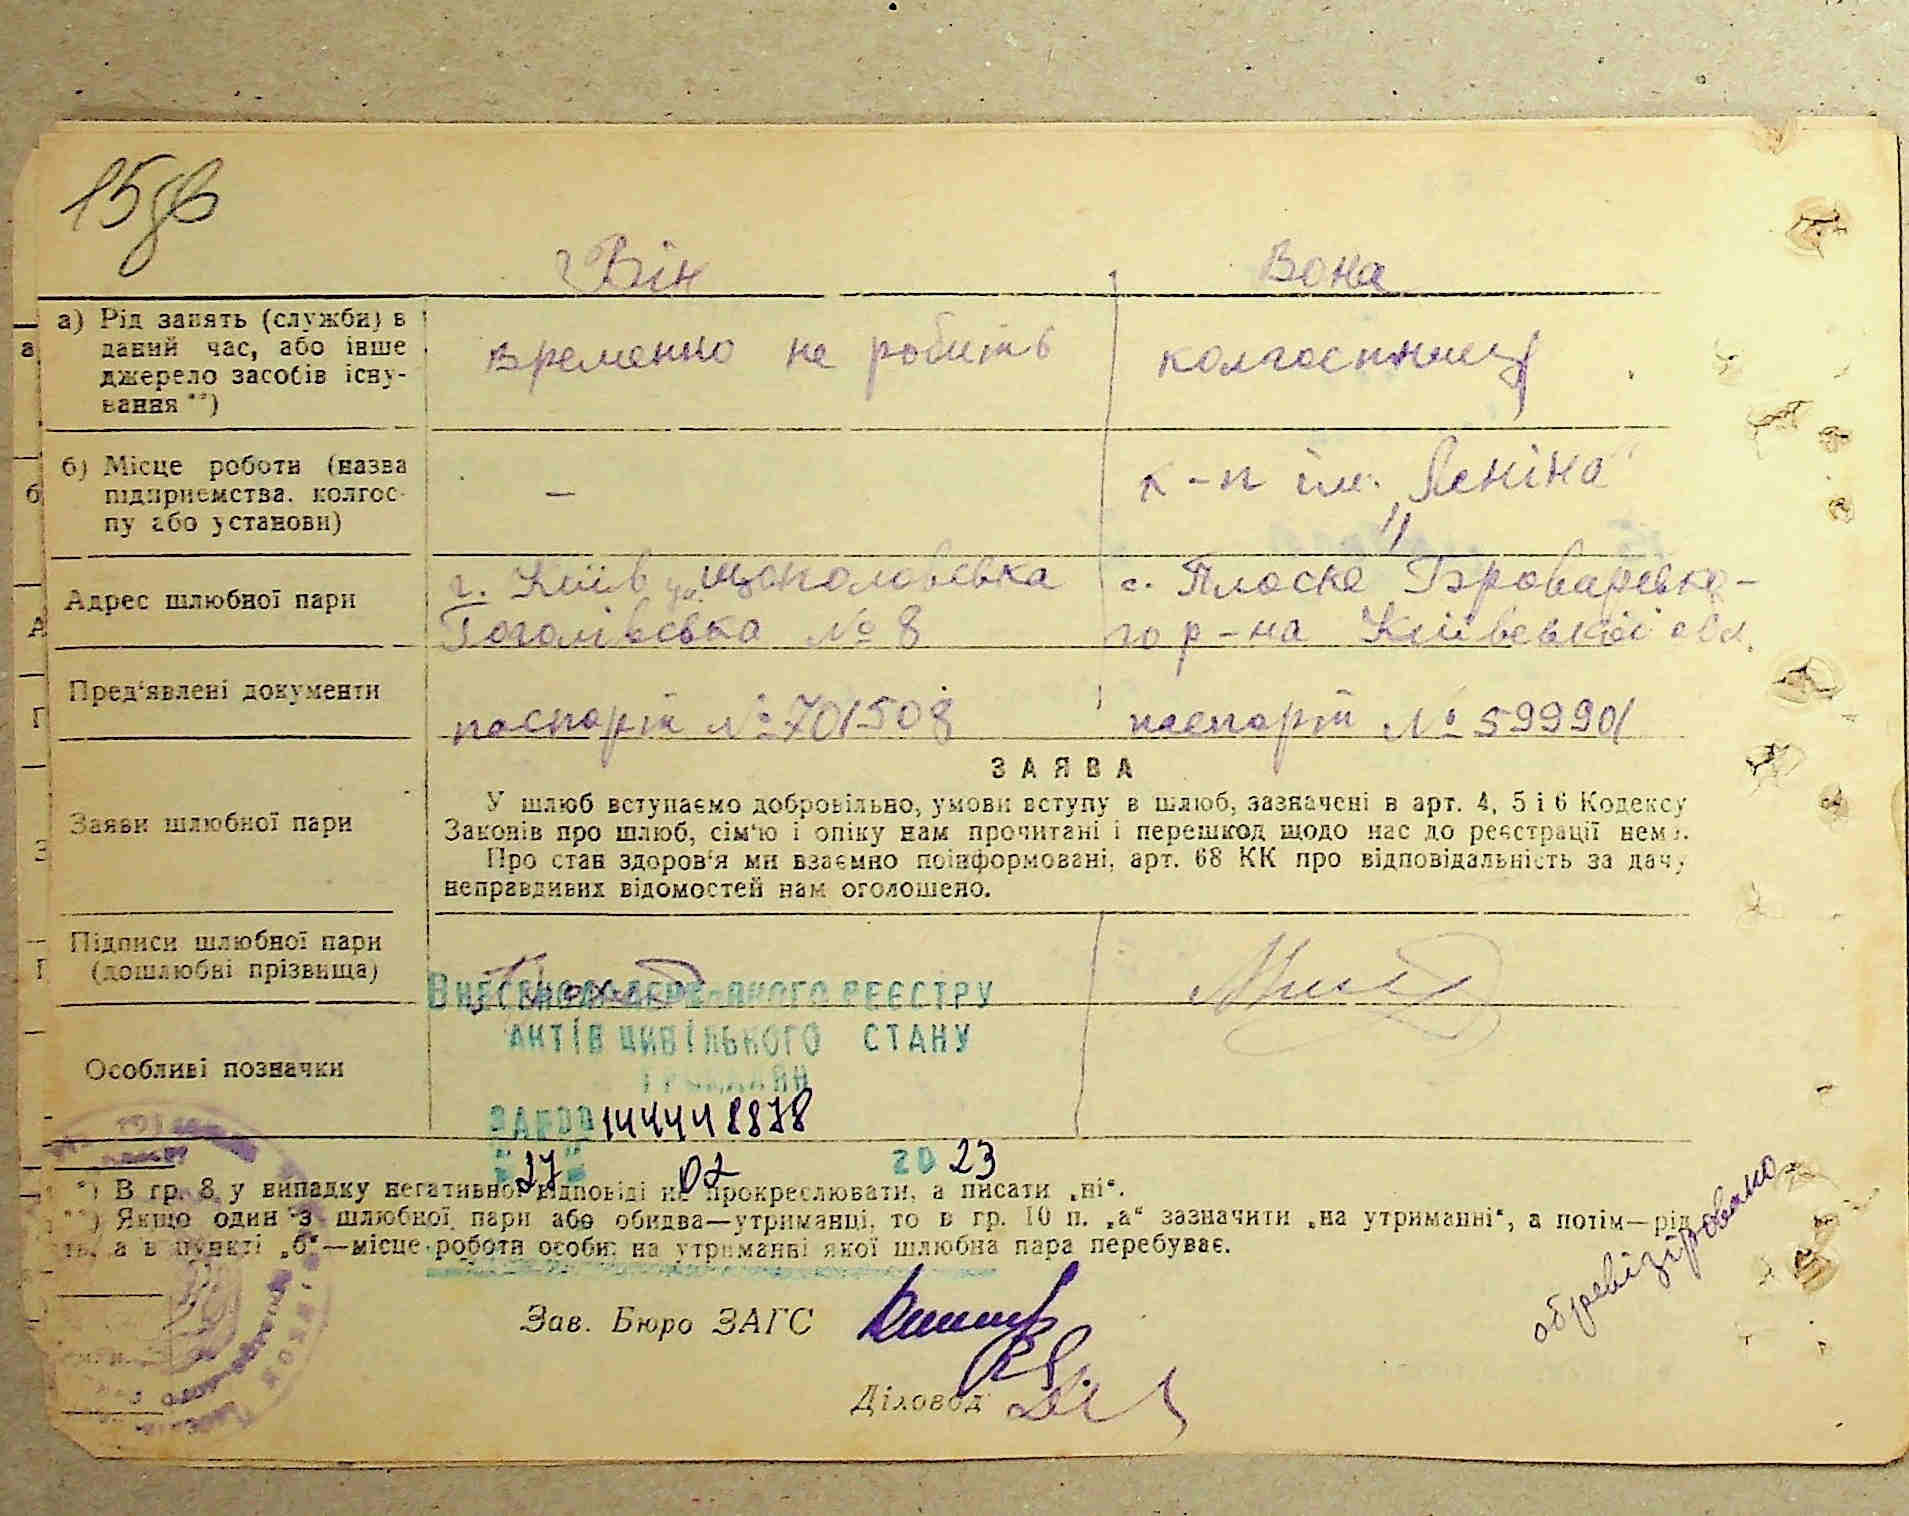 15
Він Вона
а) Рід занять (служби) в
даний час, або інше
джерело засобів існу-
вання **)
временно не робить колгоспниця
б) Місце роботи (назва
підприємства, колгос-
пу або установи)
— к-п ім. „Леніна"
Адрес шлюбної пари
г. Київ с. Плоске Броварсько-
Гоголівська № 8 го р-на Київської обл.
Пред'явлені документи
паспорт № 701508 паспорт № 599901
ЗАЯВА
Заяви шлюбної пари
У шлюб вступаємо добровільно, умови вступу в шлюб, зазначені в арт. 4, 5 і 6 Кодексу
Законів про шлюб, сім'ю і опіку нам прочитані і перешкод щодо нас до реєстрації нема.
Про стан здоров'я ми взаємно поінформовані, арт. 68 КК про відповідальність за дачу
неправдивих відомостей нам оголошено.
Підписи шлюбної пари
(дошлюбні прізвища)
Внесено до державного реєстру
актів цивільного стану
громадян
Особливі позначки
за № 00144448878
"27" 02 2023
*) В гр. 8 у випадку негативної відповіді не прокреслювати, а писати „ні".
**) Якщо один з шлюбної пари або обидва—утриманці, то в гр. 10 п. „а" зазначити „на утриманні", а потім—рід
а в пункті „б"—місце роботи особи, на утриманні якої шлюбна пара перебуває.
обревізіровано
Зав. Бюро ЗАГС
Діловод